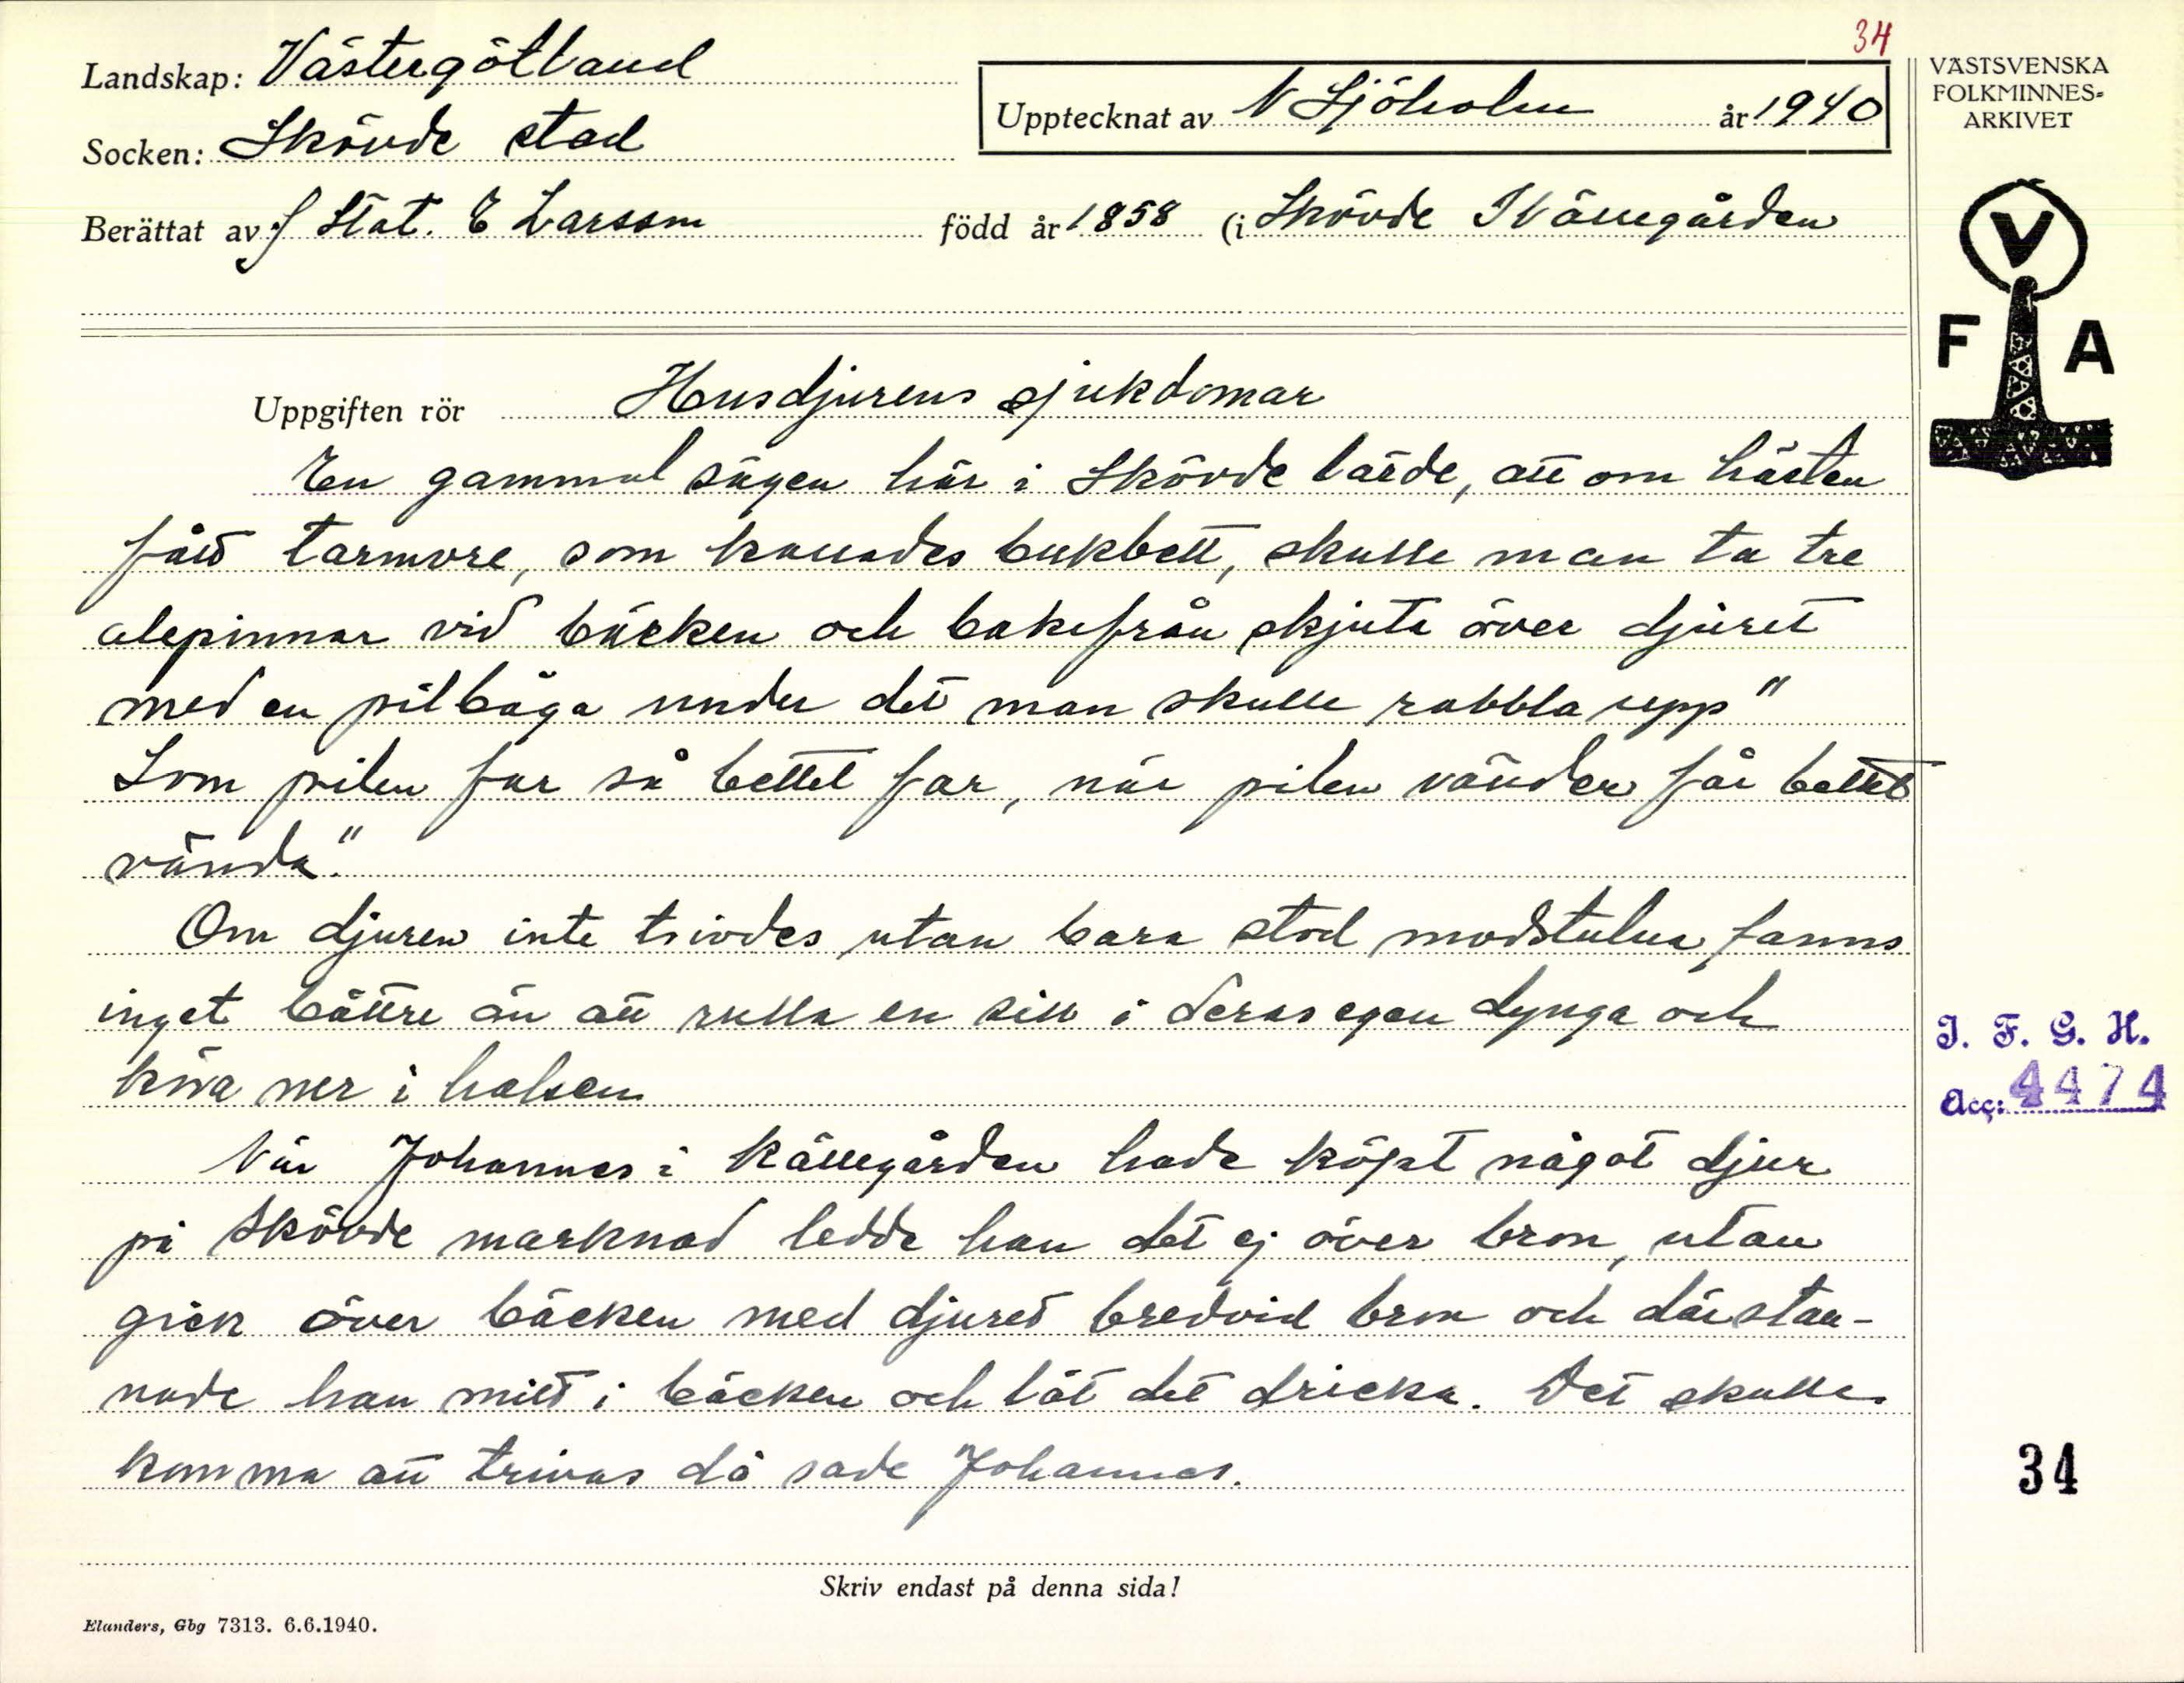 34
Landskap: Västergötland
Upptecknat av N Sjöholm år 1940
Socken: Skövde stad
Berättat av f Stat. E Larsson född år 1858 (i Skövde Källegården
Uppgiften rör Husdjurens sjukdomar
En gammal sägen här i Skövde lärde, att om hästen
fått tarmvre, som kallades bukbett, skulle man ta tre
alepinnar vid bäcken och bakifrån skjuta över djuret
med en pilbåga under det man skulle rabbla upp "
Som pilen far så bettet far, när pilen vänder får bettet
vända."
Om djuren inte trivdes utan bara stod modstulna fanns
inget bättre än att rulla en sill i deras egen dynga och
köra ner i halsen
När Johannes i Källegården hade köpt något djur
på Skövde marknad ledde han det ej över bron, utan
gick över bäcken med djuret bredvid bron och där stan-
nade han mitt i bäcken och lät det dricka. Det skulle
komma att trivas då sade Johannes.
Skriv endast på denna sida!
Elanders, Gbg 7313. 6.6.1940.
VÄSTSVENSKA
FOLKMINNES=
ARKIVET
V
F A
I. F. G. H.
Acc: 4474
34